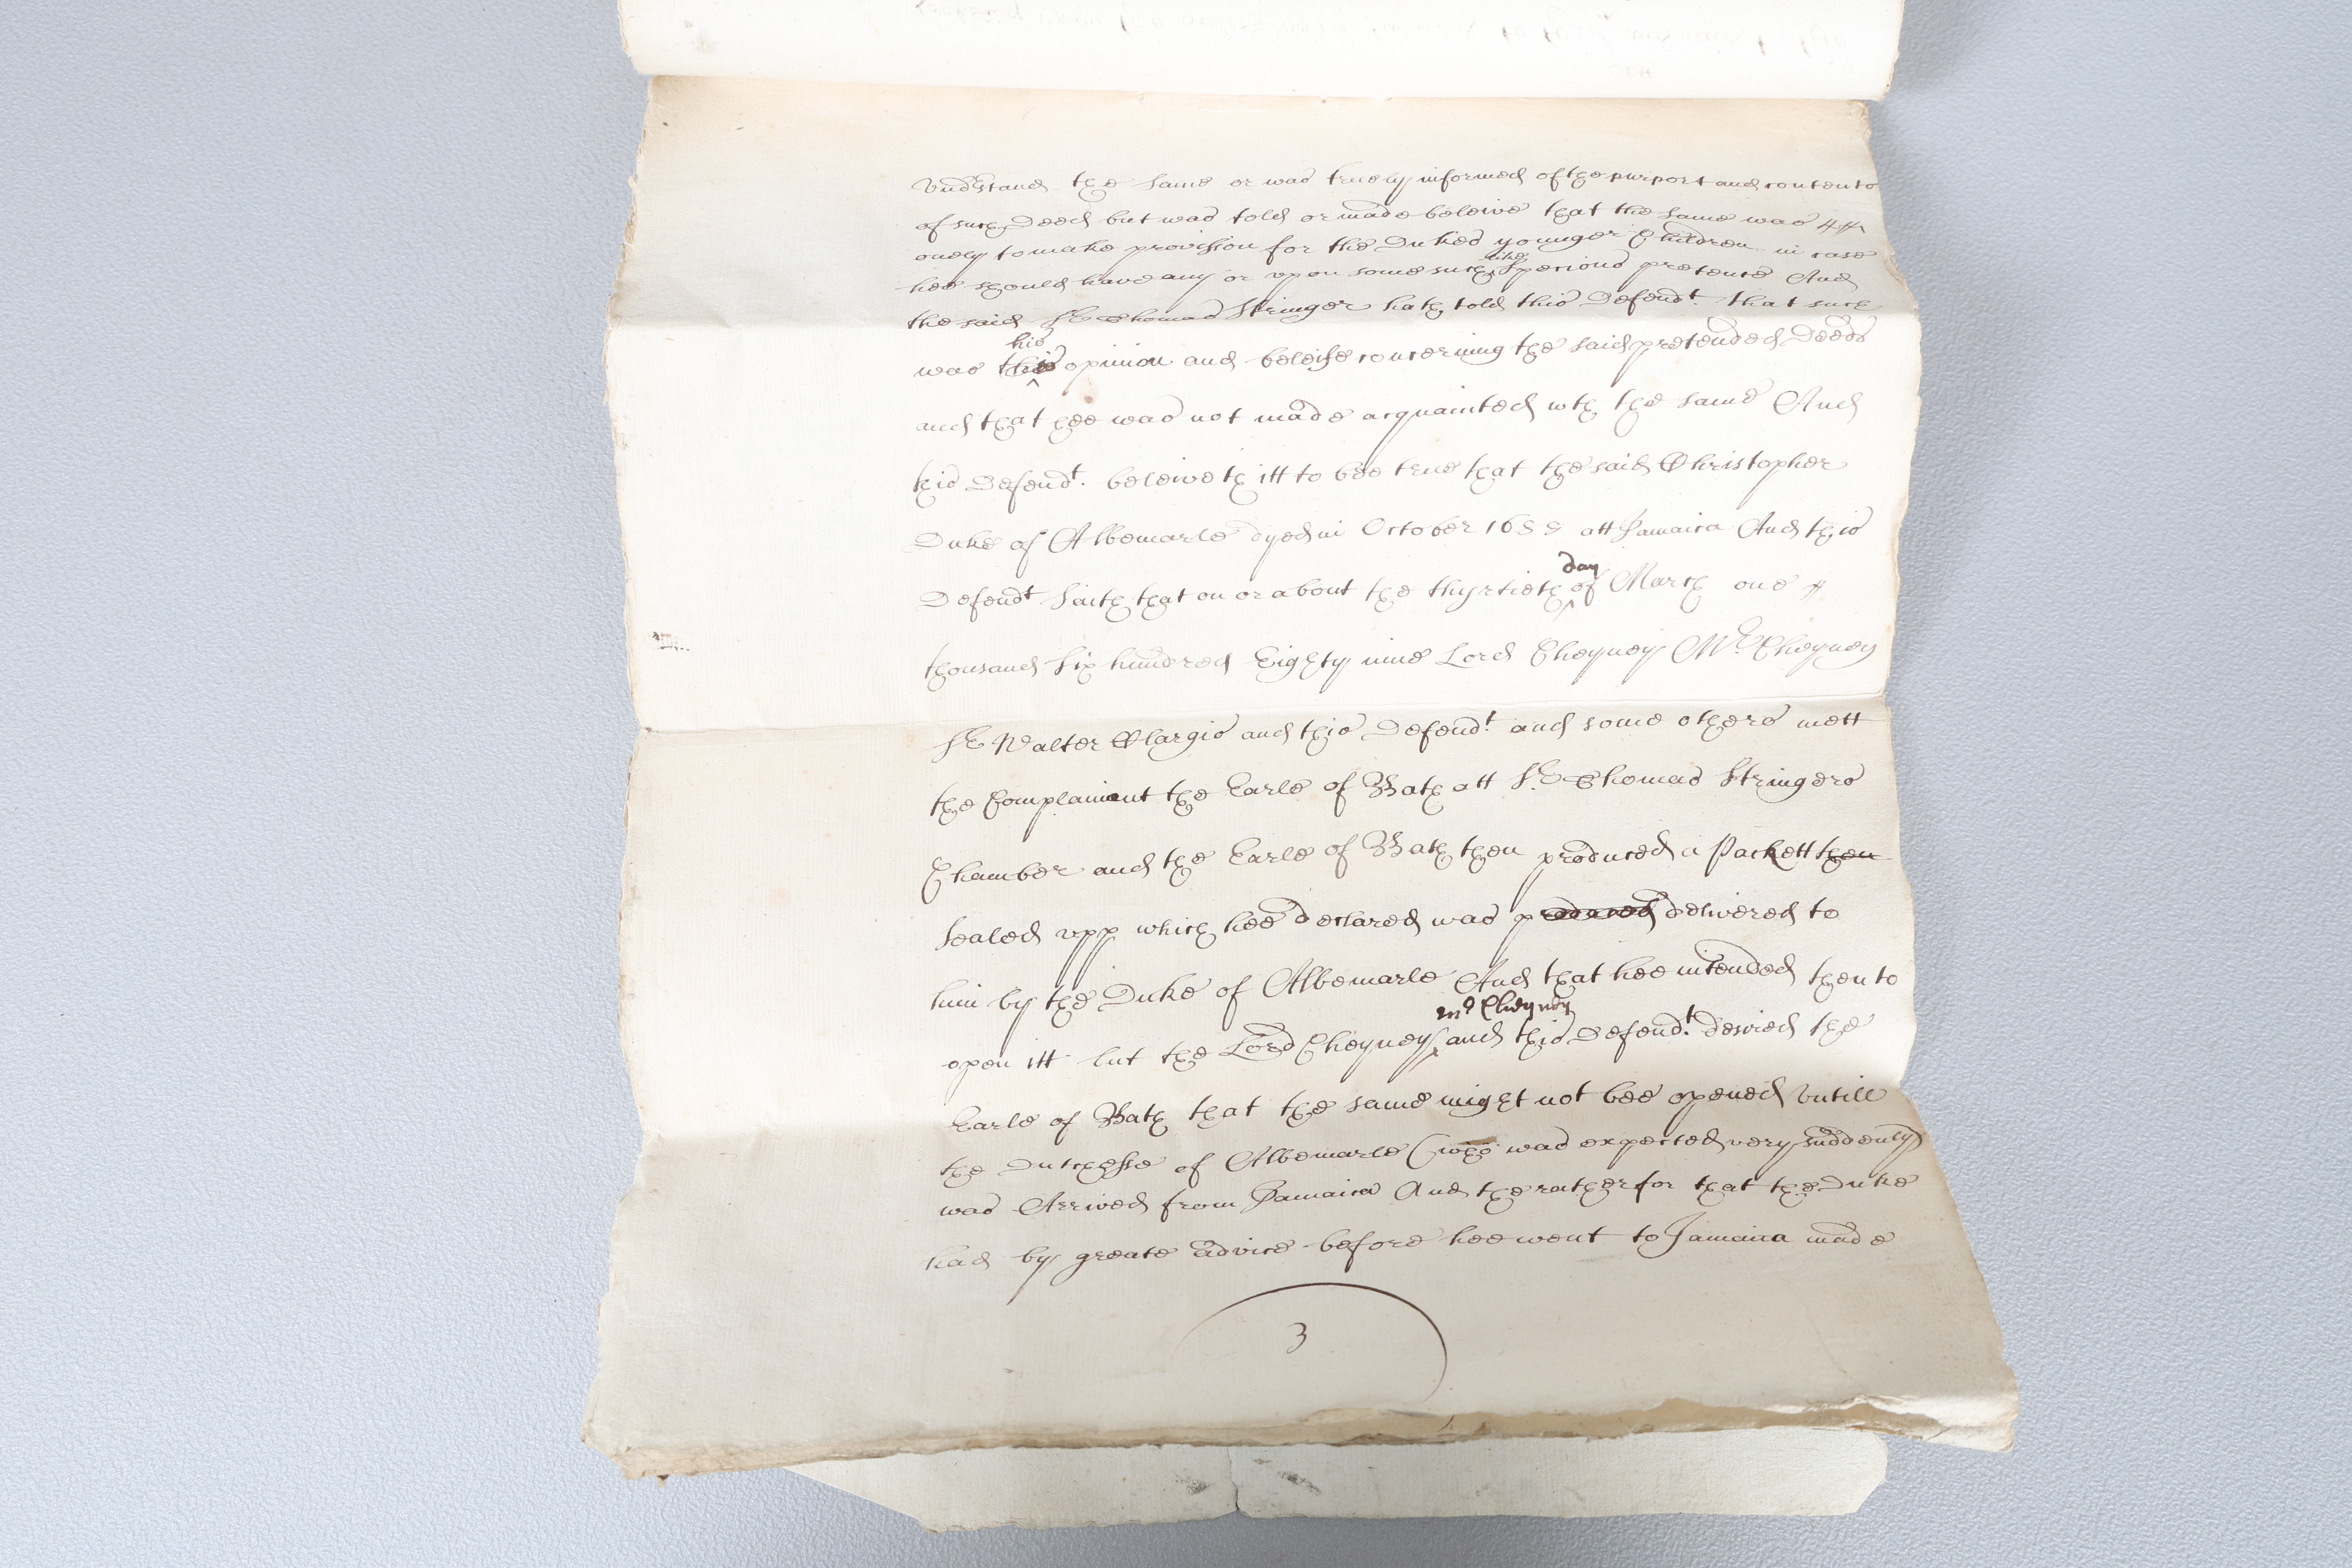 Vnd'stand the same or was truely informed of the purport and contents
of such Deed but was told or made beleive that the same was
onely to make provission for the Dukes younger Children in case
hee should have any or vpon some such like Specious pretence And
the said Sr. Thomas Stringer hath told this Defendt. that such
was this his opinion and beleife concerning the said pretended Deeds
and that hee was not made acquainted wth the same And
this Defendt. beleiveth itt to bee true that the said Christopher
Duke of Albemarle dyed in October 1688 att Jamaica And this
Defendt saith that on or about the thyrtieth day of March one
thousand six hundred Eighty nine Lord Cheyney Mr. Cheyney
Sr Walter Clargis and this Defendt. and some others mett
the Complainant the Earle of Bath att Sr. Thomas Stringers
Chamber and the Earle of Bath then produced a Packett then
sealed vpp which hee declared was produced delivered to
him by the Duke of Albemarle And that hee intended then to
open itt but the Lord Cheyney mr Cheyney and this Defendt. desired the
Earle of Bath that the same might not bee opened vntill
the Dutchesse of Albemarle (who was expected very suddenly)
was Arrived from Jamaica And the rather for that the Duke
had by greate Advice before hee went to Jamaica made
3